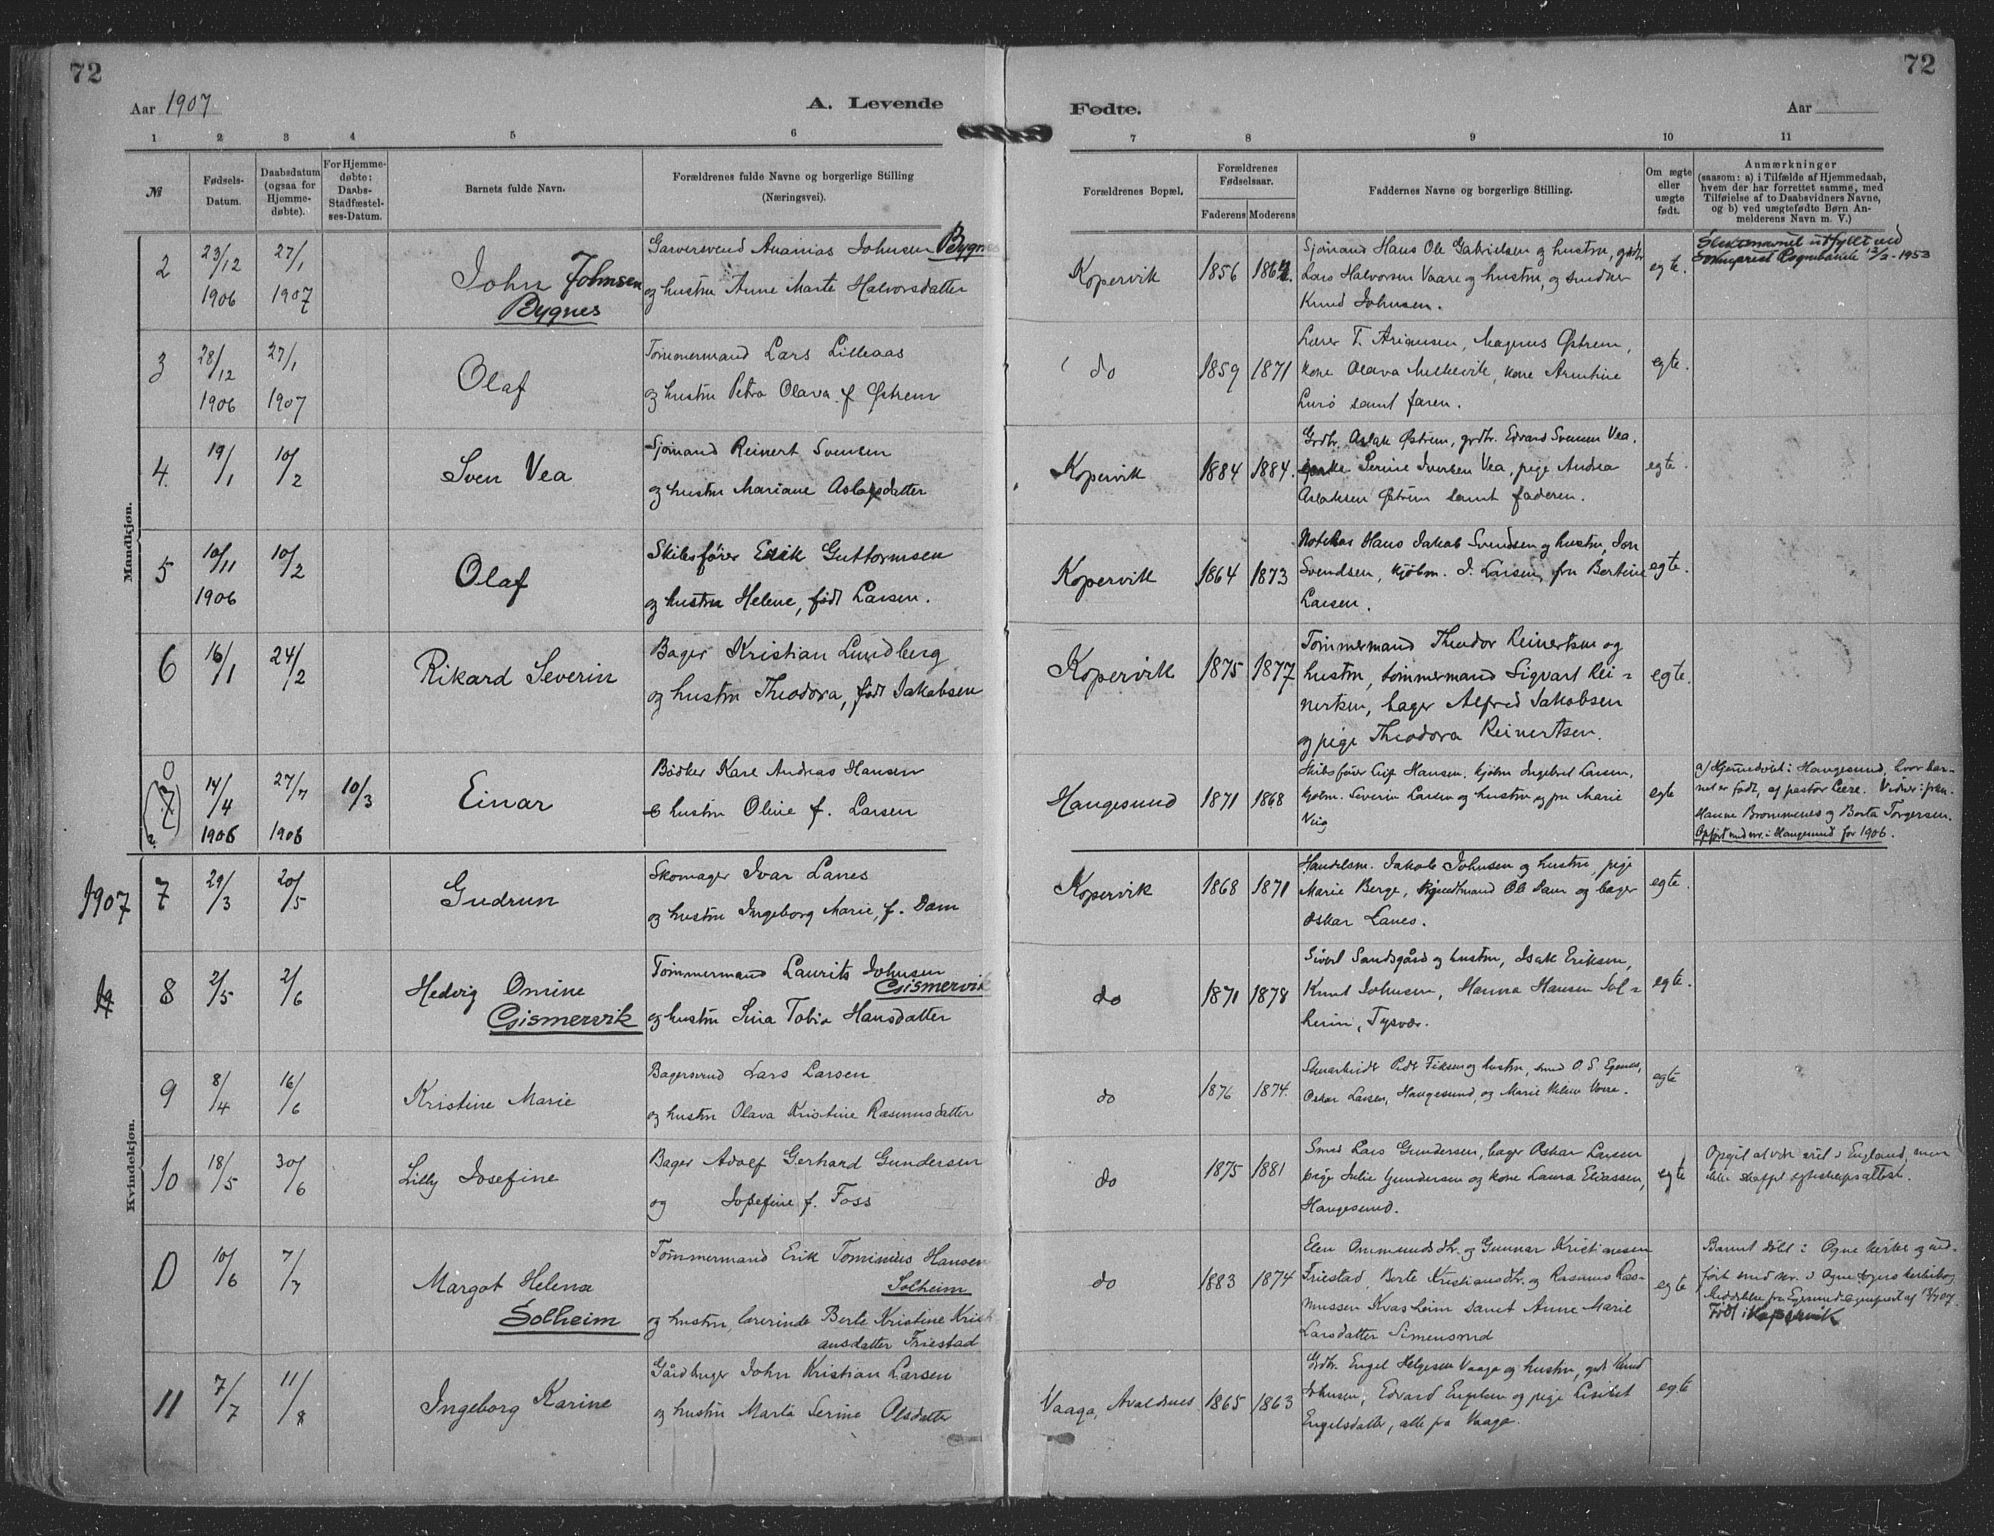 72
72
Aar 1907
A. Levende
Fødte.
Aar
1 2 3 4 5 6 7 8 9 10 11
№
Fødsels-
Datum.
Daabsdatum
(ogsaa for
Hjemme-
døbte).
For Hjemme-
døbte:
Daabs-
Stadfæstel-
ses-Datum.
Barnets fulde Navn.
Forældrenes fulde Navne og borgerlige Stilling
(Næringsvei).
Forældrenes Bopæl.
Forældrenes
Fødselsaar.
Faderens Moderens
Faddernes Navne og borgerlige Stilling.
Om ægte
eller
uægte
født.
Anmærkninger
(saasom: a) i Tilfælde af Hjemmedaab,
hvem der har forrettet samme, med
Tilføielse af to Daabsvidners Navne,
og b) ved uægtefødte Børn An-
melderens Navn m. V.)
Mandkjøn.
2
23/12
1906
27/1
1907
John Johnsen
Bygnes
Garversvend Ananias Johnsen Bygnes
og hustru Anne Marte Halvorsdatter
Kopervik
1856
Sjømand Hans Ole Gabrielsen og hustru, grdbr.
Lars Halvorsen Vaare og hustru, og snedker
Knud Johnsen.
egte.
Slektsnavnet utfyllt ved
Sokneprest 13/2-1953
3
28/12
1906
27/1
1907
Olaf
Tømmermand Lars Lillaas
og hustru Petra Olava f. Østrem
do
1859 1871
Lærer T. Ariansen, Magnus Østrem,
kone Olava Melkevik, kone
samt faren.
egte.
4
19/1
10/2
Sven Vea
Sjømand Reinert Svensen
og hustru Mariane Aslaksdatter
Kopervik
1884 1884.
Grdbr. Aslak Østrem, grdbr. Edvard Svensen Vea,
Serine Iversen Vea, pige Andrea
Aslaksen Østrem samt faderen.
egte.
5
10/11
1906
10/2
Olaf
Skibsfører Erik Guttormsen
og hustru Helene, født Larsen.
Kopervik
1864 1873
Hans Jakob Svendsen og hustru, Jon
Svendsen, kjøbm. J. Larsen, fru Bertine
Larsen.
egte.
6
16/1
24/2
Rikard Severin
Bager Kristian Lundberg
og hustru Theodora, født Jakobsen
Kopervik
1875 1877
Tømmermand Theodor Reinertsen og
hustru, tømmermand Sigvart Rei=
nertsen, bager Alfred Jakobsen
og pige Theodora Reinertsen.
egte.
0
14/4
1906
27/7
1906
10/3
Einar
Bødker Karl Andreas Hansen
& hustru Oline f. Larsen
Haugesund
1871 1868
Skibsfører Hansen, kjøbm. Ingebret Larsen,
kjøbm. Severin Larsen og hustru og fru Marie
egte
a) Hjemmedøbt i Haugesund, hvor bar-
net er født, af pastor Vidner:
Hanne Brommenes og Berta Torgersen.
Opført med nr. i Haugesund for 1906.
Kvindekjøn.
1907
7
29/3
20/5
Gudrun
Skomager Ivar Lanes
og hustru Ingeborg Marie, f. Dam
Kopervik
1868 1871
Handelsm. Jakob Johnsen og hustru, pige
Marie Berge, Ole Dam og bager
Oskar Lanes.
egte.
8
2/5
2/6
Hedvig Omine
Gismervik
Tømmermand Laurits Johnsen
Gismervik
og hustru Sina Tobia Hansdatter
do
1871 1878
Sivert Sandsgård og hustru, Isak Eriksen,
Knut Johnsen, Hanna Hansen Sol=
heim, Tysvær.
egte.
9
8/4
16/6
Kristine Marie
Bagersvend Lars Larsen
og hustru Olava Kristine Rasmusdatter
do
1876 1874.
og hustru, smed O. S. Egenes,
Oskar Larsen, Haugesund, og Marie Helene
egte
10
18/5
30/6
Lilly Josefine
Bager Adolf Gerhard Gundersen
og Josefine f. Foss
do
1875 1881
Smed Lars Gundersen, bager Oskar Larsen
pige Julie Gundersen og kone Laura Eliassen,
Haugesund.
egte
Opgit at være viet i England, men
ikke skaffet egteskapsattest.
0
10/6
7/7
Margot Helena
Solheim
Tømmermand Erik Tominius Hansen
Solheim
og hustru, lærerinde Berte Kristine Krist-
iansdatter Friestad
do
1883 1874
Elen Ommundsdtr. og Gunnar Kristiansen
Friestad, Berte Kristiansdtr. og Rasmus Ras-
mussen Kvasheim samt Anne Marie
Larsdatter Simensund
egte
Barnet døbt i Ogne kirke og ind-
ført med nr. i Ogne sogns kirkebog.
Meddelelse fra Egersund sogneprest af 13/7 07.
Født i Kopervik
11
7/7
11/8
Ingeborg Karine
Gårdbruger John Kristian Larsen
og hustru Marta Serine Olsdatter
Vaaga, Avaldsnes
1865 1863
Grdbr. Engel Helgesen Vaaga og hustru, Knud
Johnsen, Edvard Engelsen og pige Lisibet
Engelsdatter, alle fra Vaaga.
egte